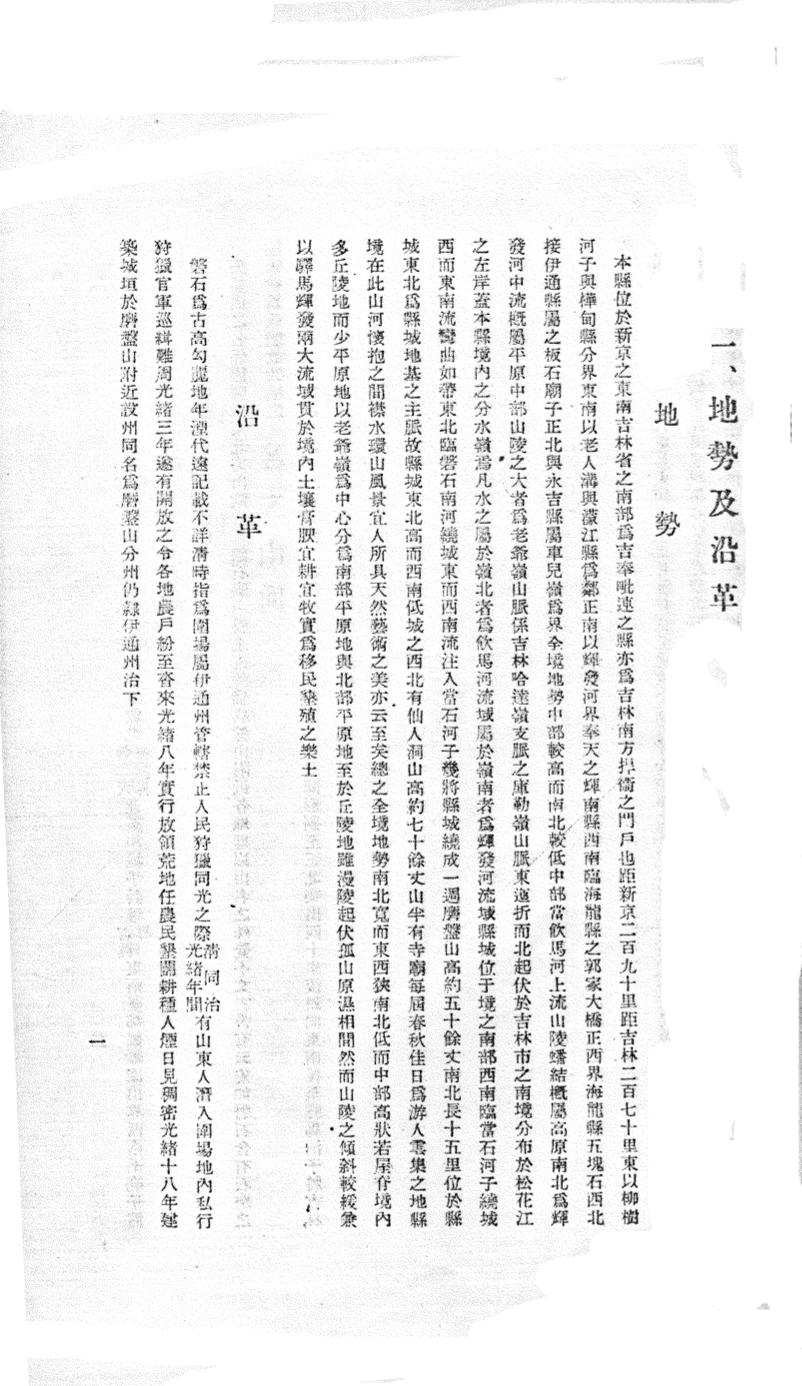 一、地勢及沿革
地勢
本縣位於新京之東南吉林省之南部爲吉奉毗連之縣亦爲吉林南方捍衞之門戶也距新京二百九十里距吉林二百七十里東以柳樹
河子與樺甸縣分界東南以老人溝與濛江縣爲鄰正南以輝發河界奉天之輝南縣西南臨海龍縣之郭家大橋正西界海龍縣五塊石西北
接伊通縣屬之板石廟子正北與永吉縣屬車兒嶺爲界全境地勢中部較高而南北較低中部當飮馬河上流山陵蟠結槪屬高原南北爲輝
發河中流槪屬平原中部山陵之大者爲老爺嶺山脈係吉林哈達嶺支脈之庫勒嶺山脈東迤折而北起伏於吉林市之南境分布於松花江
之左岸蓋本縣境內之分水嶺焉凡水之屬於嶺北者爲飮馬河流域屬於嶺南者爲輝發河流域縣城位于境之南部西南臨當石河子繞城
西而東南流彎曲如帶東北臨磐石南河繞城東而西南流注入當石河子幾將縣城繞成一週磨盤山高約五十餘丈南北長十五里位於縣
城東北爲縣城地基之主脈故縣城東北高而西南低城之西北有仙人洞山高約七十餘丈山半有寺廟每屆春秋佳日爲游人雲集之地縣
境在此山河懷抱之間襟水環山風景宜人所具天然藝術之美亦云至矣總之全境地勢南北寬而東西狹南北低而中部高狀若屋脊境內
多丘陵地而少平原地以老爺嶺爲中心分爲南部平原地與北部平原地至於丘陵地雖漫陵起伏孤山原濕相間然而山陵之傾斜較緩兼
以驛馬輝發兩大流域貫於境內土壤膏腴宜耕宜牧實爲移民墾殖之樂土
沿革
磐石爲古高勾麗地年湮代遠記載不詳淸時指爲圍場屬伊通州管轄禁止人民狩獵同光之際淸同治光緖年間有山東人潛入圍場地內私行
狩獵官軍巡緝難周光緖三年遂有開放之令各地農戶紛至沓來光緖八年實行放領荒地任農民墾闢耕種人煙日見稠密光緖十八年建
築城垣於磨盤山附近設州同名爲磨盤山分州仍隸伊通州治下
一